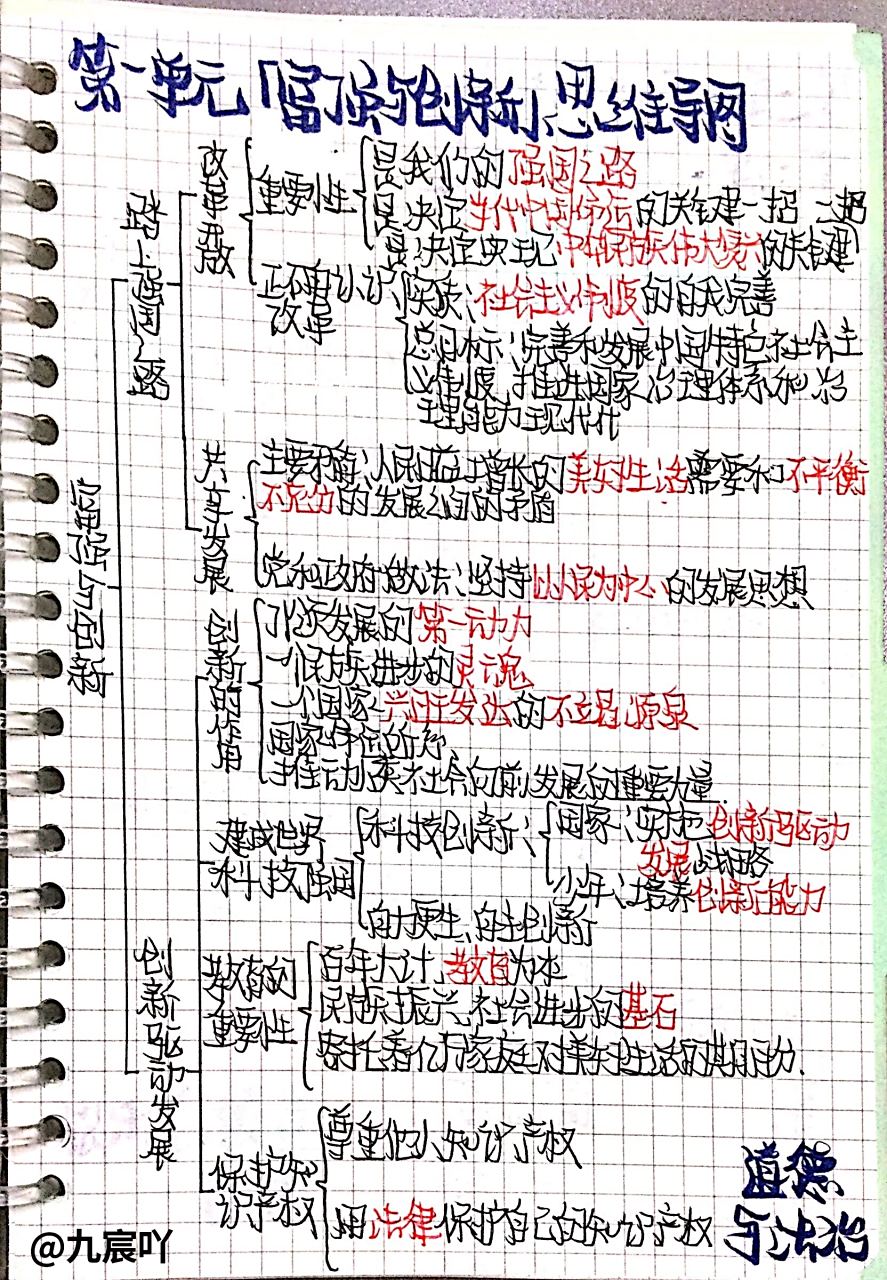 第一单元「富强与创新」思维导图
富强与创新
踏上强国之路
改革开放
重要性
是我们的强国之路
是决定当代中国命运的关键一招
是决定实现中华民族伟大复兴的关键
正确认识
改革
实质：社会主义制度的自我完善
总目标：完善和发展中国特色社会主
义制度，推进国家治理体系和治
理能力现代化
共享发展
主要矛盾：人民日益增长的美好生活需要和不平衡
不充分的发展之间的矛盾
党和政府做法：坚持以人民为中心的发展思想
创新驱动发展
创新的作用
引领发展的第一动力
一个民族进步的灵魂
一个国家兴旺发达的不竭源泉
国家命运所系
推动人类社会向前发展的重要力量
建成世界
科技强国
科技创新：
国家：实施创新驱动
发展战略
少年：培养创新能力
自力更生、自主创新
教育的
重要性
百年大计，教育为本
民族振兴、社会进步的基石
寄托着亿万家庭对美好生活的期盼.
保护知
识产权
尊重他人知识产权
用法律保护自己的知识产权
道德
与法治
@九宸吖